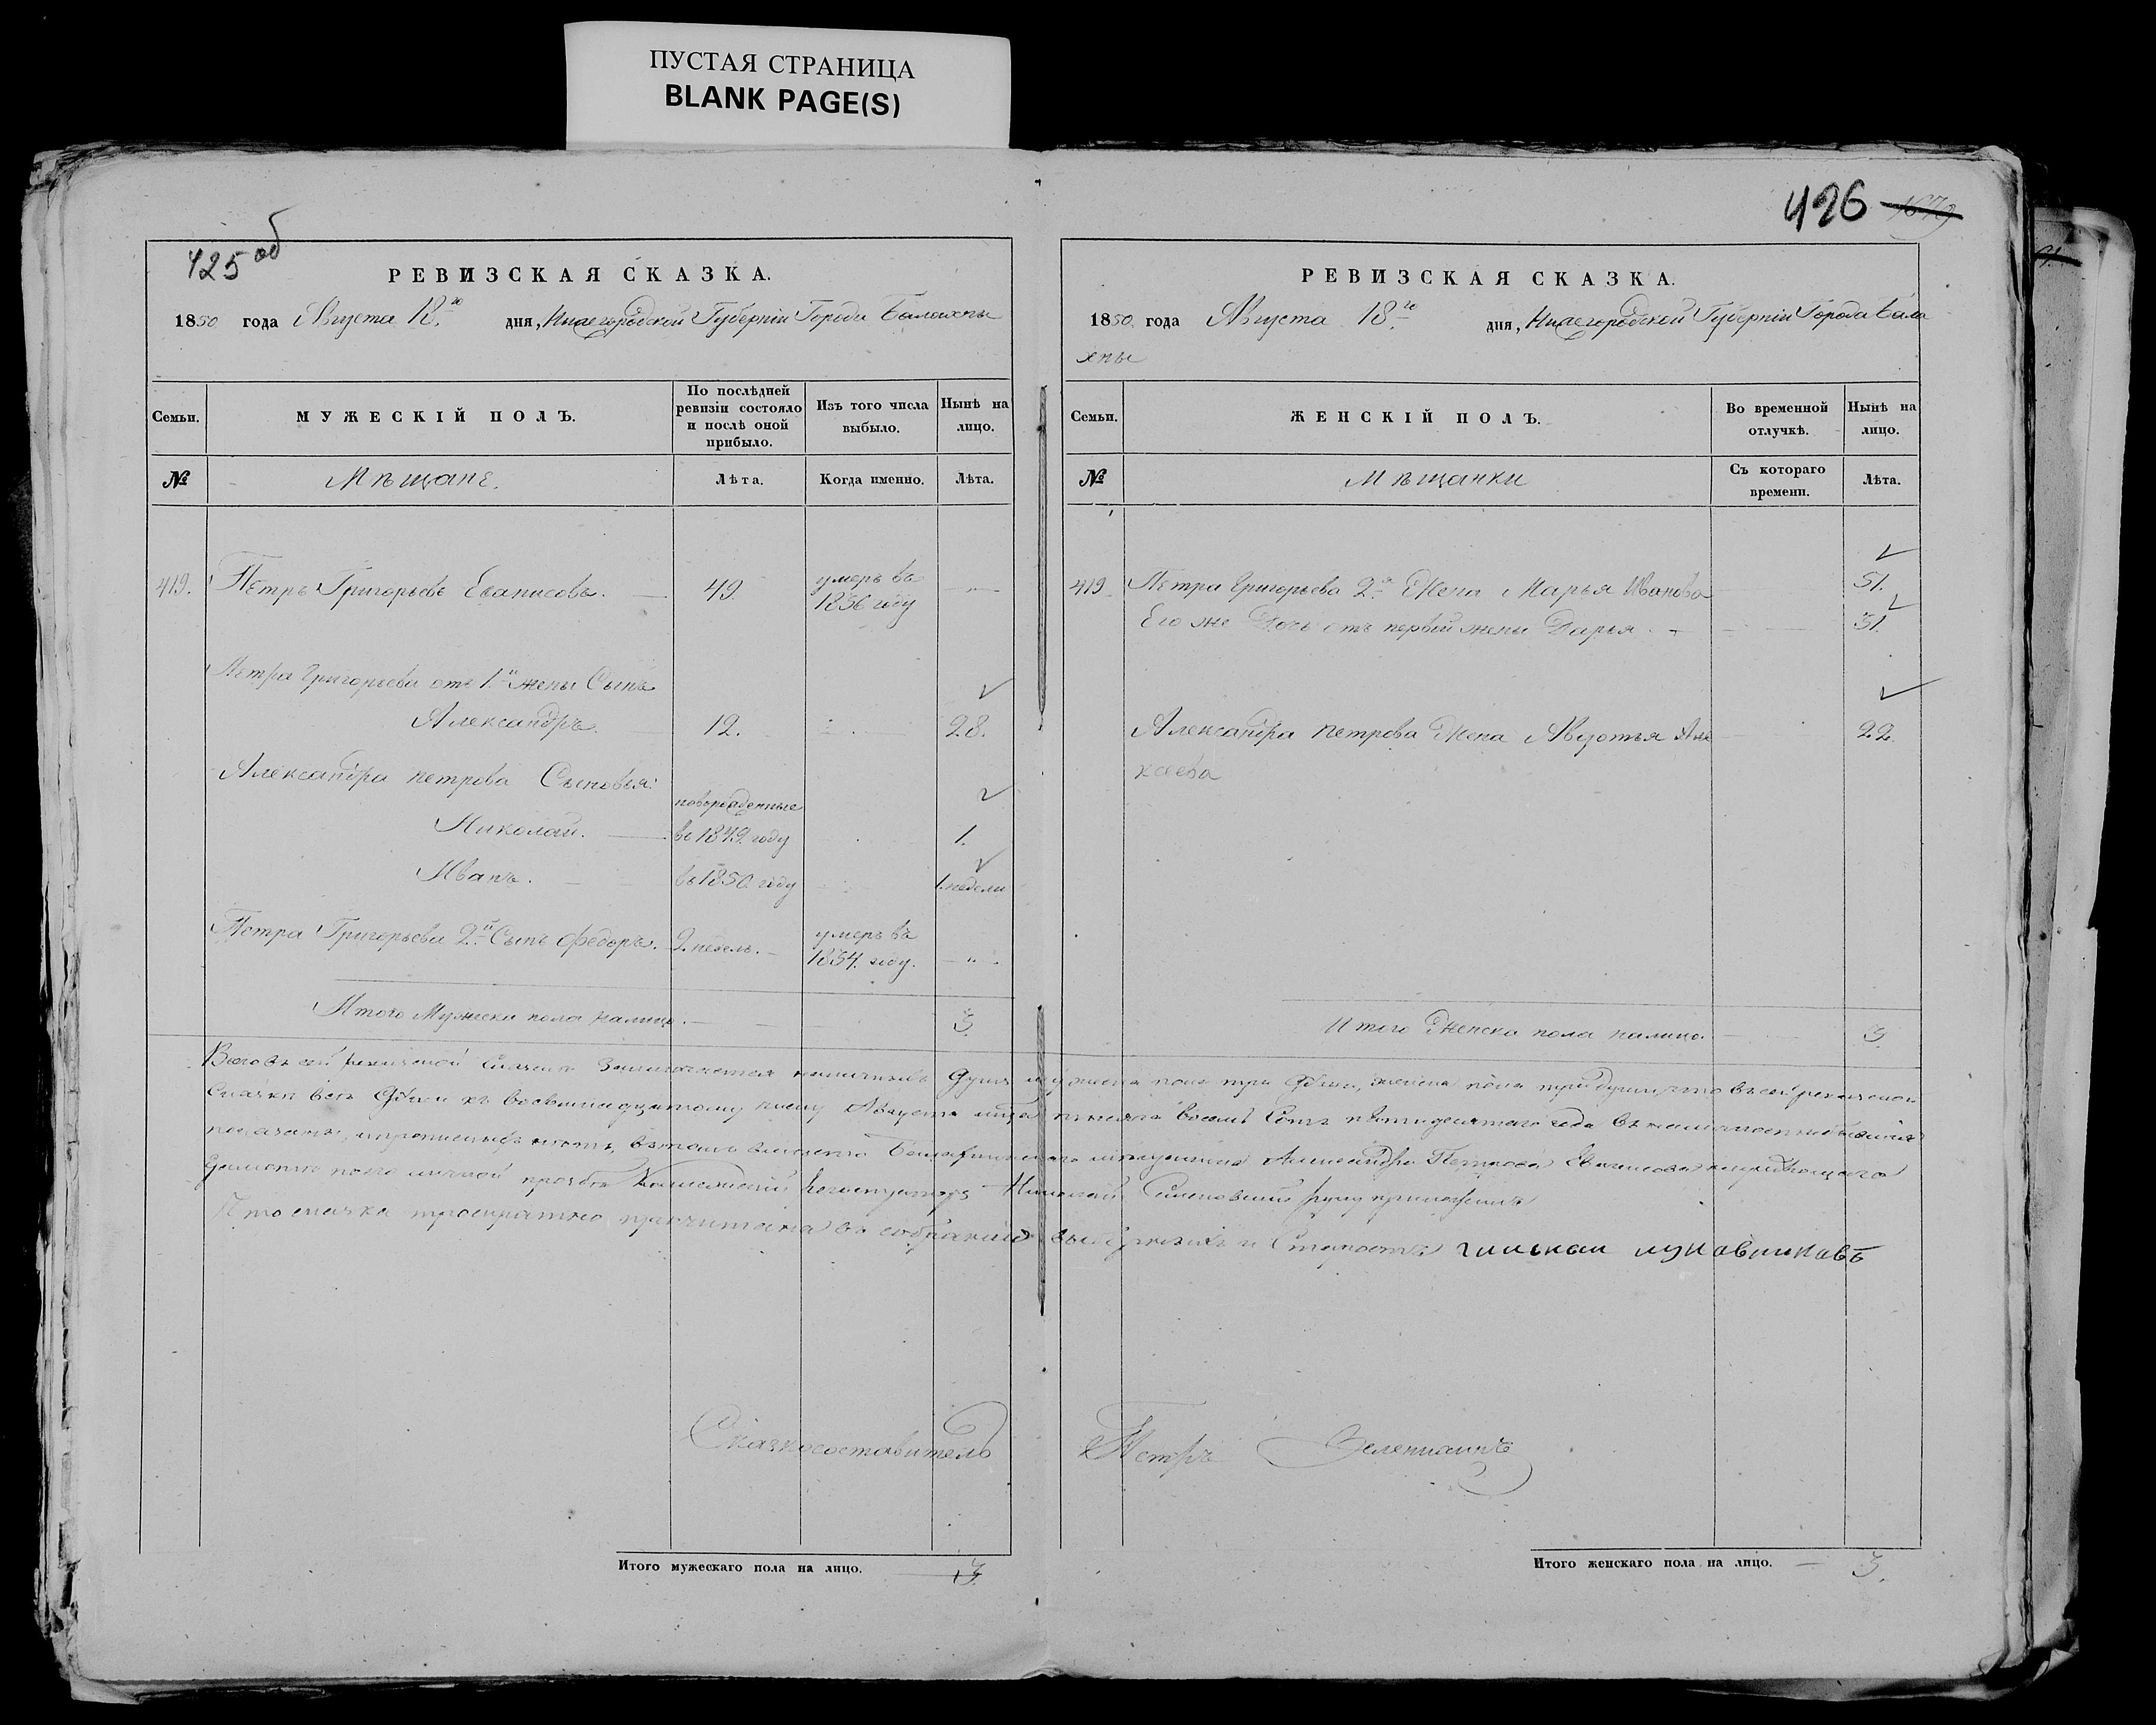 ПУСТАЯ СТРАНИЦА
BLANK PAGE(S)
425 об
РЕВИЗСКАЯ СКАЗКА.
1850 года Августа 18го дня, Нижегородской Губерніи Города Балахны
Семьи.
МУЖЕСКІЙ ПОЛЪ.
По послѣдней
ревизіи состояло
и послѣ оной
прибыло.
Изъ того числа
выбыло.
Нынѣ на
лицо.
№
Мѣщане.
Лѣта.
Когда именно.
Лѣта.
419. Петръ Григорьевъ 49 умеръ въ
1836 году
Петра Григорьева отъ 1й жены Сынъ
Александръ. 12. 28.
Александра петрова Сыновья:
новорожденные
Николай. въ 1849 году 1.
Иванъ. въ 1850 году 1. недели
Петра Григорьева 2й Сынъ Федоръ. 2. недель. умеръ въ
1834. году.
Итого Мужеска пола налицо. 3.
Сказкосоставитель
Итого мужескаго пола на лицо. 3.
426 1679
РЕВИЗСКАЯ СКАЗКА.
1850 года Августа 18го дня, Нижегородской Губерніи Города Бала
хны
Семьи.
ЖЕНСКІЙ ПОЛЪ.
Во временной
отлучкѣ.
Нынѣ на
лицо.
№
Мѣщанки
Съ котораго
времени.
Лѣта.
419 Петра Григорьева 2я Жена Марья Иванова 51.
Его же Дочь отъ первой жены Дарья 31.
Александра петрова Жена Авдотья Але 22.
ксеева
Итого Женска пола налицо. 3.
Всего въ сей ревизской Сказке наличныхъ душъ мужеска пола три души, женска пола три души, что въ сей ревизской
Сказки все души къ восемнадцатому числу Августа тысяча восемь Сотъ пятидесятого года въ
показаны, въ томъ вместо Балахнинского мещанина Александра Петрова
по его личной прозбе Николай руку приложилъ
троекратно прочитана въ собраніи и Староста
Петръ
Итого женскаго пола на лицо. 3.